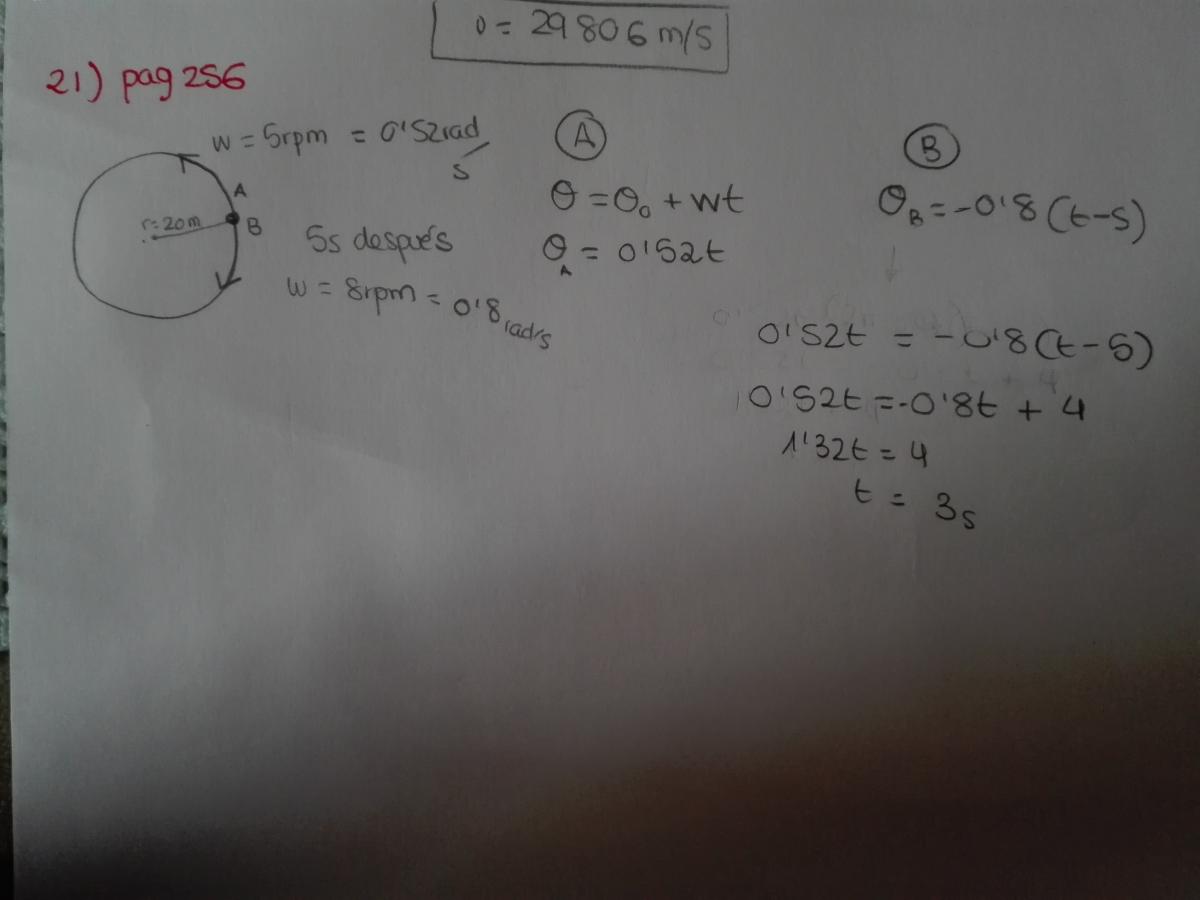 v = 29806 m/s
21) pag 256
w = 5rpm = 0'52 rad/s
A
r=20m
B
5s después
w = 8rpm = 0'8 rad/s
A
θ = θ₀ + wt
θ_A = 0'52t
B
θ_B = -0'8 (t-5)
0'52t = -0'8(t-5)
0'52t = -0'8t + 4
1'32t = 4
t = 3s